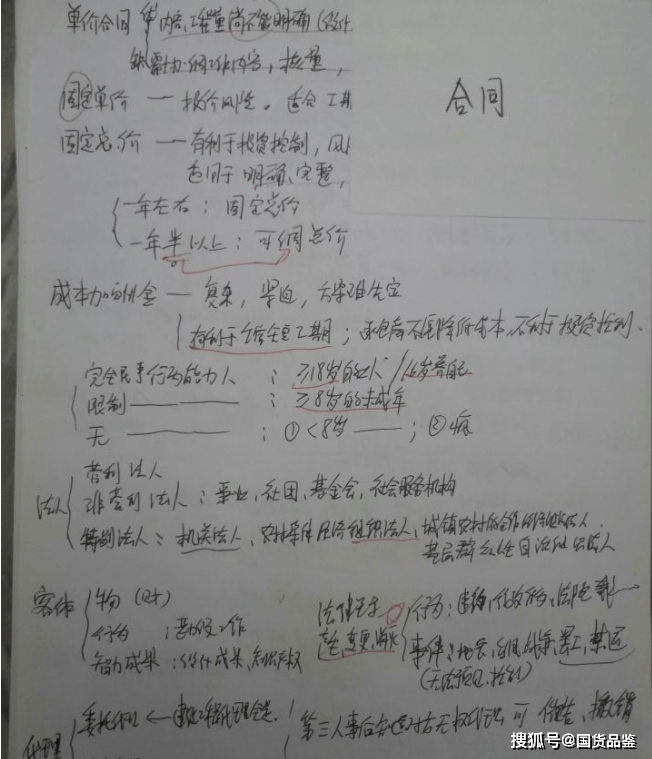 单价合同 内容、工程量尚不能明确(设计
缩短 内容,核量,
合同
固定单价 — 报价风险。适合 工期
固定总价 — 有利于投资控制,风险
适用于 明确、完整,
一年左右:固定总价
一年半以上:可调总价
成本加酬金 — 复杂,紧迫,方案难先定
有利于缩短工期;承包商不愿降低成本,不利于投资控制.
完全民事行为能力人 :≥18岁的成人/16岁养自己
限制———— :≥8岁的未成年
无 ———— :①<8岁——;②疯
营利法人
法人 非营利法人:事业、社团、基金会、社会服务机构
特别法人:机关法人、农村集体经济组织法人、城镇农村的合作经济组织法人.
基层群众性自治组织法人
客体 物(财)
行为:劳务、工作
智力成果:设计成果、知识产权
法律关系
产生、变更、消灭
行为:
事件:地震、 战争、罢工、禁运
(无法预见、控制)
代理 委托代理 ← 建设工程代理
第三人事后知道对方无权代理 可 催告、撤销
搜狐号@国货品鉴